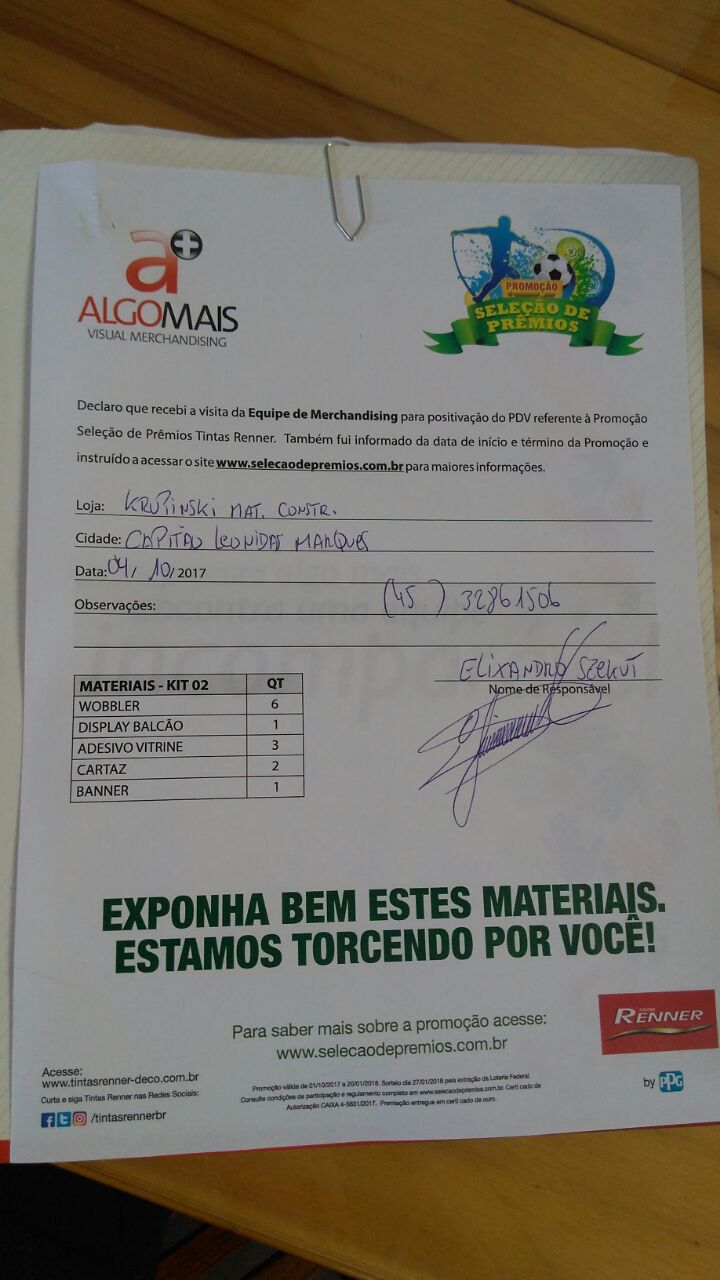 a+
ALGOMAIS
VISUAL MERCHANDISING
PROMOÇÃO
SELEÇÃO DE
PRÊMIOS
Declaro que recebi a visita da Equipe de Merchandising para positivação do PDV referente à Promoção
Seleção de Prêmios Tintas Renner. Também fui informado da data de início e término da Promoção e
instruído a acessar o site www.selecaodepremios.com.br para maiores informações.
Loja: KRUPINSKI MAT. CONSTR.
Cidade: CAPITÃO LEONIDAS MARQUES
Data: 04/10/2017
Observações: (45) 32861506
ELIXANDRO
Nome de Responsável
MATERIAIS - KIT 02 QT
WOBBLER 6
DISPLAY BALCÃO 1
ADESIVO VITRINE 3
CARTAZ 2
BANNER 1
EXPONHA BEM ESTES MATERIAIS.
ESTAMOS TORCENDO POR VOCÊ!
TINTAS
RENNER
Para saber mais sobre a promoção acesse:
www.selecaodepremios.com.br
by PPG
Acesse:
www.tintasrenner-deco.com.br
Curta e siga Tintas Renner nas Redes Sociais:
/tintasrennerbr
Promoção válida de 01/10/2017 a 20/01/2018. Sorteio dia 27/01/2018 pela extração da Loteria Federal.
Consulte condições de participação e regulamento completo em www.selecaodepremios.com.br. Certi cado de
Autorização CAIXA 4-5631/2017. Premiação entregue em certi cado de ouro.